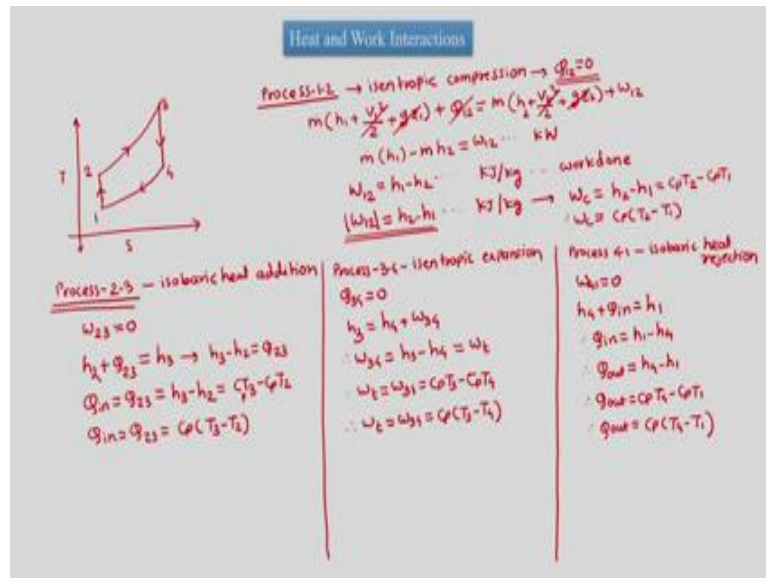 Heat and Work Interactions
Process-1-2 → isentropic compression → q₁₂=0
m(h₁+V₁²/2+gz₁) + q₁₂ = m(h₂+V₂²/2+gz₂)+W₁₂
m(h₁)-mh₂ = W₁₂ ... kW
W₁₂ = h₁-h₂ ... kJ/kg ... workdone
|W₁₂| = h₂-h₁ ... kJ/kg → Wc = h₂-h₁ = CpT₂-CpT₁
∴ Wc = Cp(T₂-T₁)
T
S
1
2
3
4
Process-2-3 - isobaric heat addition
W₂₃=0
h₂+q₂₃ = h₃ → h₃-h₂=q₂₃
qin = q₂₃ = h₃-h₂ = CpT₃-CpT₂
qin = q₂₃ = Cp(T₃-T₂)
Process-3-4-isentropic expansion
q₃₄=0
h₃ = h₄+W₃₄
∴ W₃₄ = h₃-h₄ = Wt
∴ Wt = W₃₄ = CpT₃-CpT₄
∴ Wt = W₃₄ = Cp(T₃-T₄)
Process 4-1 - isobaric heat rejection
W₄₁=0
h₄+qin = h₁
∴ qin = h₁-h₄
∴ qout = h₄-h₁
∴ qout = CpT₄-CpT₁
∴ qout = Cp(T₄-T₁)